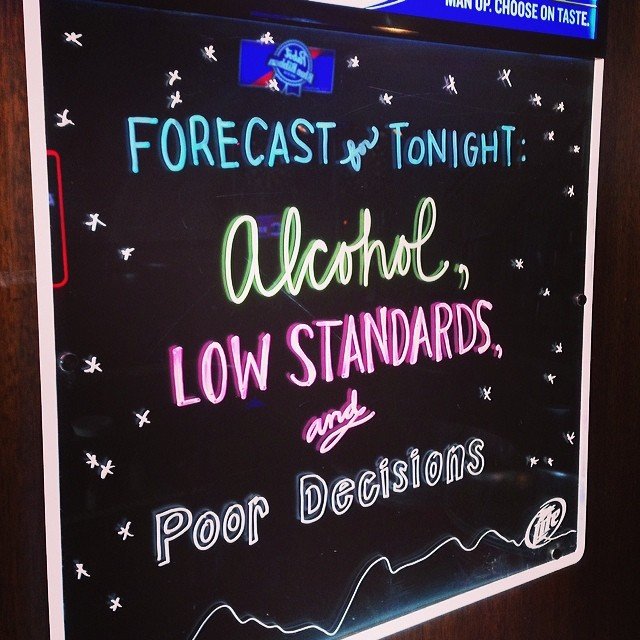 MAN UP. CHOOSE ON TASTE.
Pabst
Blue Ribbon
FORECAST for TONIGHT:
Alcohol,
LOW STANDARDS,
and
Poor Decisions
Lite